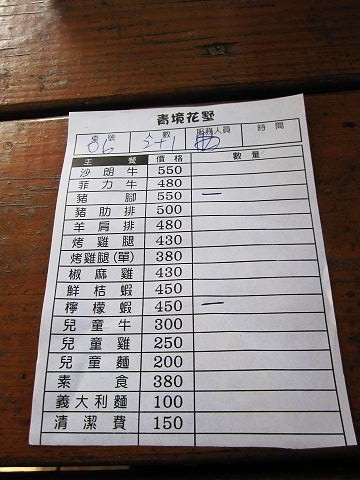 青境花墅
桌號 人數 服務人員 時間
86 2+1
主餐 價格 數量
沙朗牛 550
菲力牛 480
豬腳 550 一
豬肋排 500
羊肩排 480
烤雞腿 430
烤雞腿(單) 380
椒麻雞 430
鮮桔蝦 450
檸檬蝦 450 一
兒童牛 300
兒童雞 250
兒童麵 200
素食 380
義大利麵 100
清潔費 150